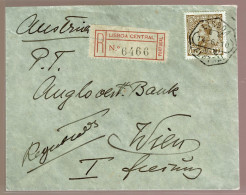 Austria
LISBOA CENTRAL
R
Nº 6466
P.T.
Anglooest. Bank
Wien
Registado
I